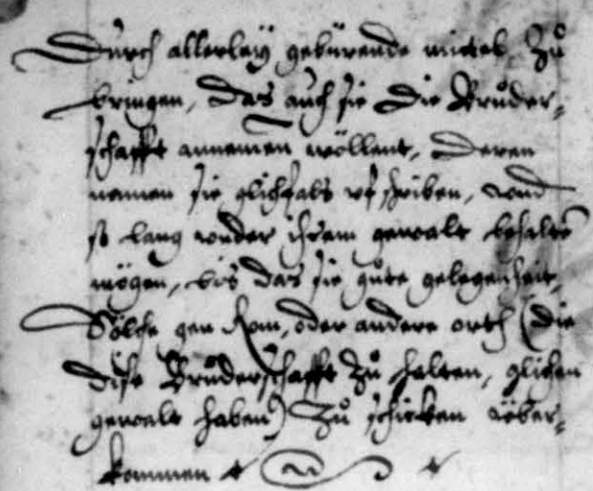 Durch allerley gebürende mittel Zů
bringen, Das auch sie die Brůder-
schafft annemen wöllent, Deren
namen sie glichfals vfschriben, vnd
so lang vnder ihrem gewalt behalten
mögen, bis das sie gůte gelegenheit,
Sölche gen Rom, oder andere orth (die
dise Brůderschafft Zů halten, glichen
gewalt haben) Zů schicken über-
kommen